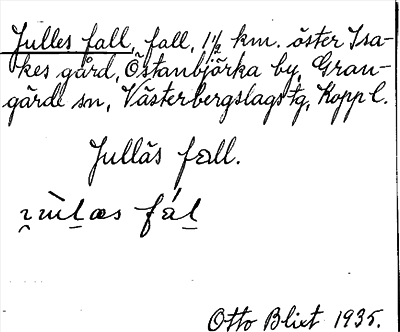 Julles fall, fall, 1 1/2 km. öster Isa-
kes gård, Östanbjörka by, Gran-
gärde sn, Västerbergslags tg, Kopp l.
Jullās fall.
fál
Otto Blixt 1935.